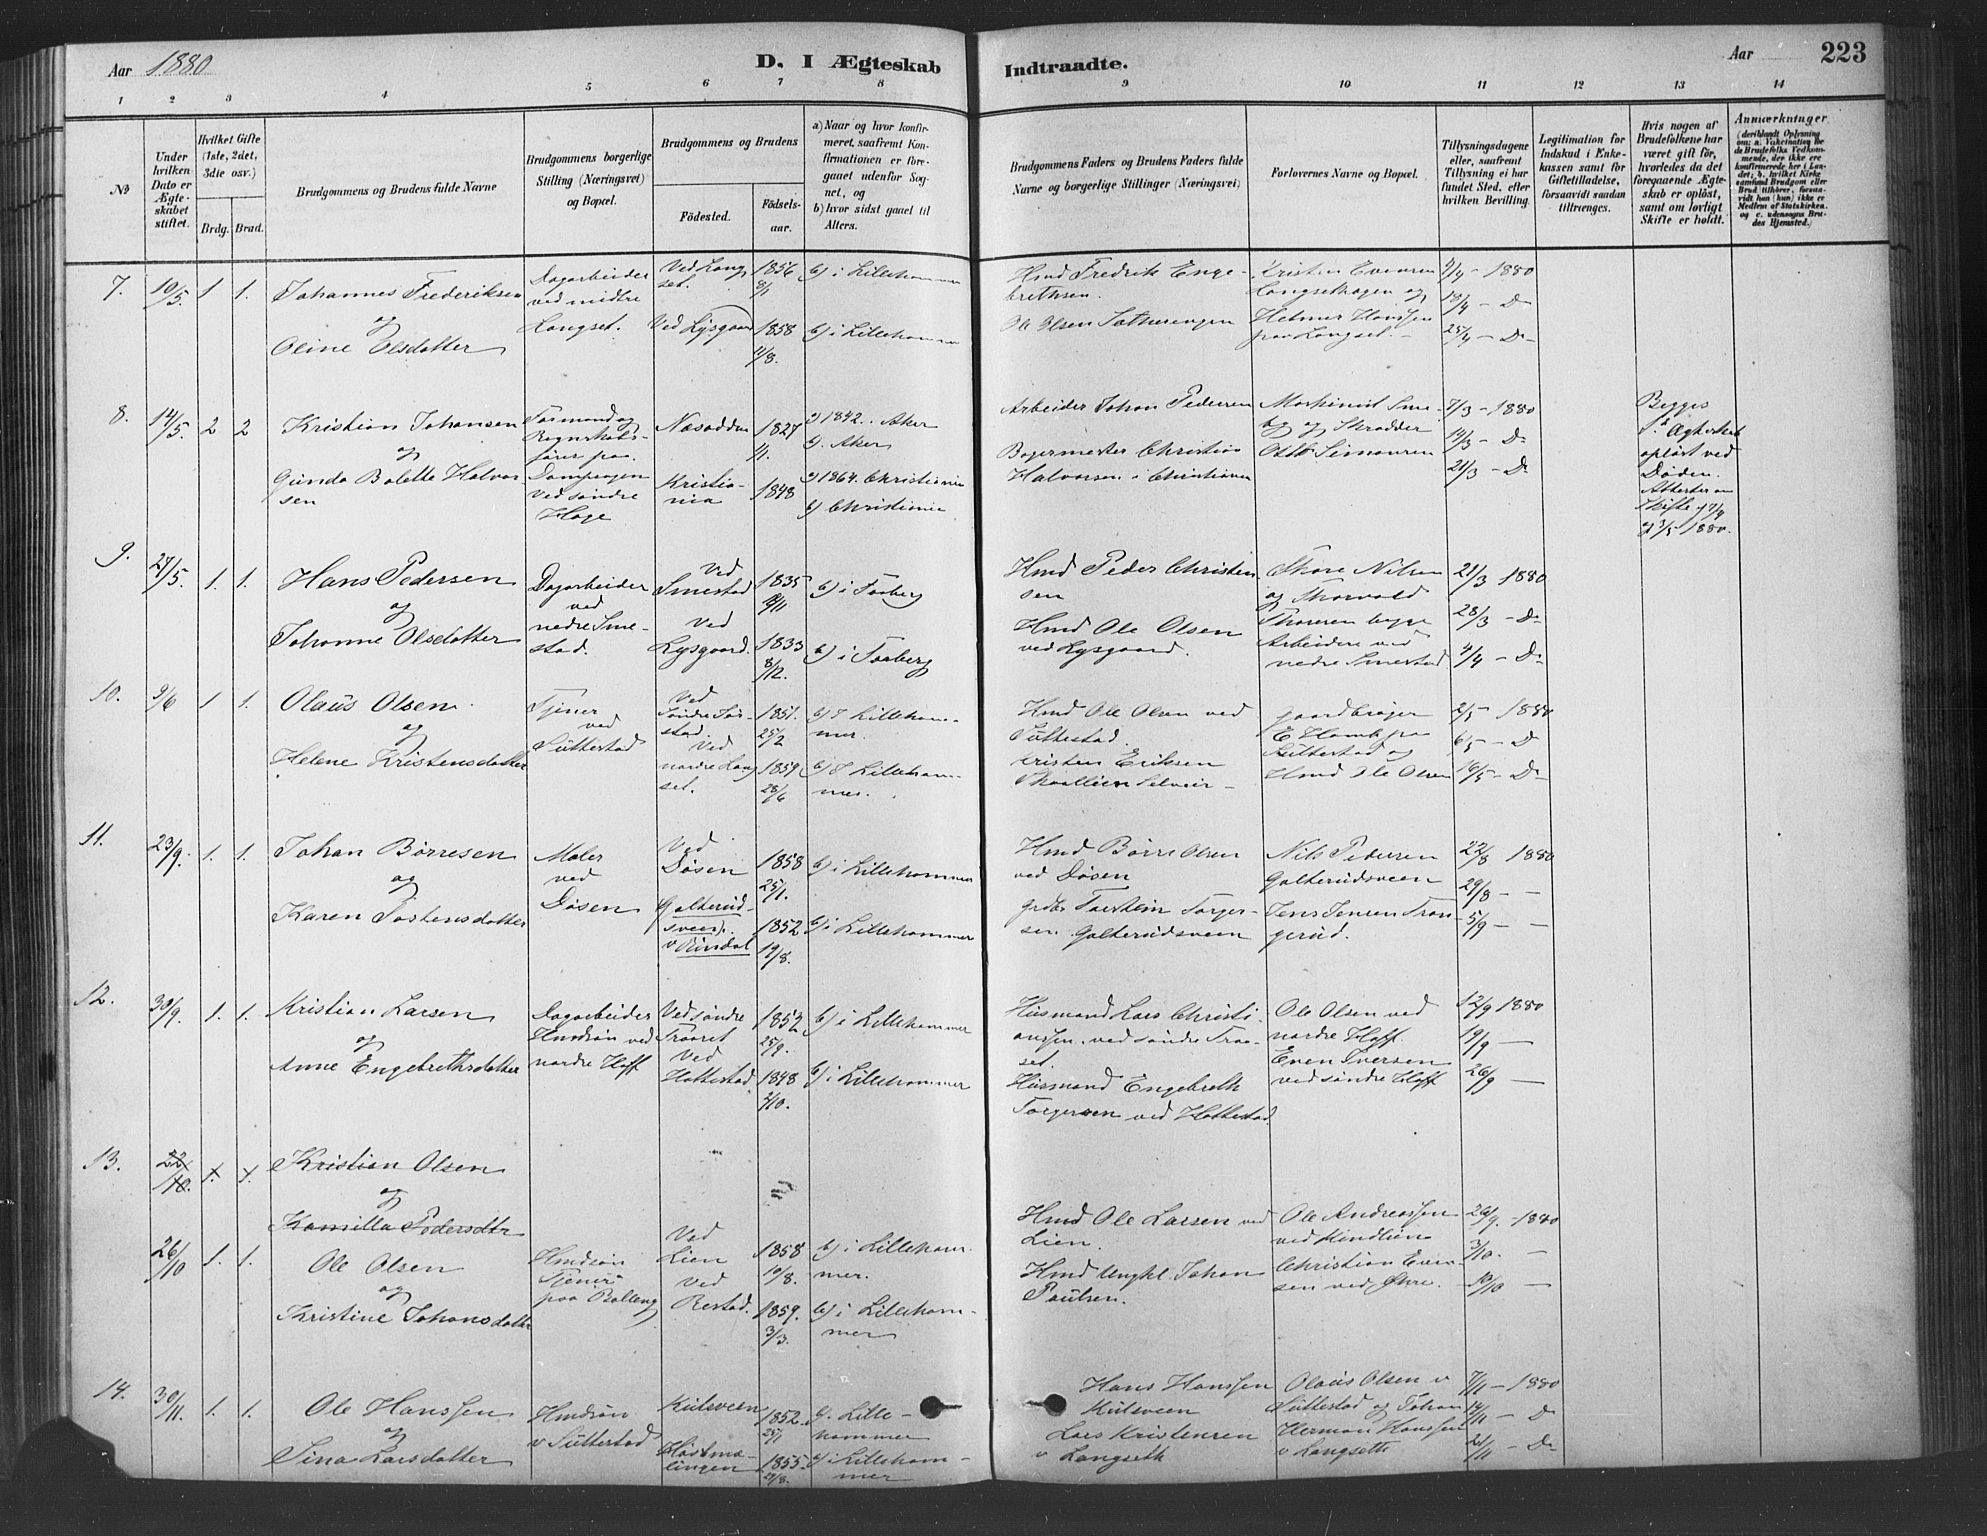 Aar 1880
D. I Ægteskab
Indtraadte.
Aar
223
1 2 3 4 5 6 7 8 9 10 11 12 13 14
No
Under hvilken Dato er Ægteskabet stiftet.
Hvilket Gifte (1ste, 2det, 3die osv.)
Brdg. Brud.
Brudgommens og Brudens fulde Navne
Brudgommens borgerlige Stilling (Næringsvei) og Bopæl.
Brudgommens og Brudens
Födested.
Födsels-aar.
a) Naar og hvor konfirmeret, saafremt Konfirmationen er foregaaet udenfor Sognet, og
b) hvor sidst gaaet til Alters.
Brudgommens Faders og Brudens Faders fulde Navne og borgerlige Stillinger (Næringsvei)
Forlovernes Navne og Bopæl.
Tillysningsdagene eller, saafremt Tillysning ei har fundet Sted, efter hvilken Bevilling.
Legitimation for Indskud i Enkekassen samt for Giftetilladelse, forsaavidt saadan tiltrænges.
Hvis nogen af Brudefolkene har været gift för, hvorledes da det foregaaende Ægteskab er oplöst, samt om lovligt Skifte er holdt.
Anmærkninger
(deriblandt Oplysning om: a. Vaccination for de Brudefolks Vedkommende, der ikke ere konfirmerede her i Landet; b. hvilket Kirkesamfund Brudgom eller Brud tilhörer, forsavidt han (hun) ikke er Medlem af Statskirken, og c. udensogns Brudes Hjemsted.
7. 10/5. 1 1.
Johannes Frederiksen
og
Oline Olsdatter
Dagarbeider
ved midtre
Langset.
Ved Lang
set.
Ved Lysgaar
1856
8/1
1858
11/8.
b) i Lillehammer
b) i Lillehammer
Hmd Fredrik Enge-
brethsen.
Ole Olsen Sætherengen
Kristen Evensen
Langsethagen og
Helmer Hanssen
paa Langset.
4/4 - 1880
18/4 - Do
25/4 - Do
8. 14/5. 2 2
Kristian Johansen
og
Gunda Bolette Halvor
sen
Formand og
Regnskabs-
fører paa
Dampsagen
ved søndre
Hage
Næsodden
Kristia-
nia
1827
1848
a) 1842. Aker
b). Aker
a) 1864. Christiania
b) Christiania
Arbeider Johan Pedersen
Bagermester Christian
Halvorsen i Christiania
Maskinist Sme
by og Skrædder
Otto Simensen
7/3 - 1880
14/3 - Do
21/3 - Do
Begges
1. Ægteskab
opløst ved
Døden.
Attester om
Skifte 17/4
og 3/5 1880.
9. 27/5. 1. 1.
Hans Pedersen
og
Johanne Olsdatter
Dagarbeider
ved
nedre Sme-
stad.
Ved
Smestad
Ved
Lysgaard.
1835
9/11
1833
8/12.
b) i Faaberg
b) i Faaberg
Hmd Peder Christen
sen
Hmd Ole Olsen
ved Lysgaard.
Thore Nilsen
og Thorvald
Thoresen begge
Arbeidere ved
nedre Smestad
21/3 1880
28/3 - Do
4/4 - Do
10. 9/6 1 1.
Olaus Olsen
og
Helene Kristensdatter
Tjener
ved
Suttestad
Ved
Søndre Sør-
stad.
Ved
nordre Lang
set.
1851.
25/2
1859.
28/6
b) i Lilleham-
mer.
b) i Lilleham-
mer.
Hmd Ole Olsen ved
Suttestad.
Kristen Eriksen
Skoallien Selveir
gaardbruger
E Hamb paa
Suttestad og
Hmd Ole Olsen
2/5 1880
6/5 - Do
16/5 - Do
11. 23/9. 1. 1.
Johan Børresen
og
Karen Tostensdatter
Maler
ved
Døsen
Ved
Døsen
Galterud-
sveen.
v Rindal
1858
25/1.
1852.
19/8.
b) i Lillehammer
b) i Lillehammer
Hmd Børre Olsen
ved Døsen
grdbr Torstein Torger-
sen. Galterudsveen
Nils Pedersen
Galterudsveen
Jens Jensen Tran-
gerud.
22/8 1880
29/8 -
5/9 - -
12. 30/9. 1. 1.
Kristian Larsen
og
Anne Engebrethsdatter
Dagarbeider
Hmdsøn ved
nordre Hoff
Ved søndre
Traaset
Ved
Hattestad
1852
25/9.
1848
2/10.
b) i Lillehammer
b) i Lillehammer
Husmand Lars Christi-
anssen. ved søndre Traa-
set.
Husmand Engebreth
Torgersen ved Hattestad
Ole Olsen ved
nordre Hoff.
Even Iversen
ved søndre Hoff
12/9 1880
19/9 -
26/9 -
13. 22/10. 1. 1.
Kristian Olsen
og
Kamilla Pedersdtr
26/10 1. 1.
Ole Olsen
og
Kristine Johansdatter
Hmdsøn
Tjener
paa Balleng
Ved
Lien
Ved
Restad.
1858
10/8.
1859.
3/3.
b) i Lilleham-
mer.
b) i Lilleham-
mer
Hmd Ole Larsen ved
Lien.
Hmd Unghl Johan
Paulsen.
Ole Andreassen
ved Kindlien
Christian Even-
sen ved Øhre.
26/9. 1880
3/10. -
10/10 -
14. 30/11. 1. 1.
Ole Hanssen
og
Sina Larsdatter
Hmdsøn
v Suttestad
Kulsveen
Kløstmæ-
lingen
1852.
25/1
1855.
b). Lille-
hammer
b) i Lilleham-
mer
Hans Hanssen
Kulsveen
Lars Kristensen
v Langseth
Olaus Olsen v
Suttestad og Johan
Herman Hanssen
v Langseth
7/11 - 1880
14/11 - Do
21/11 - Do